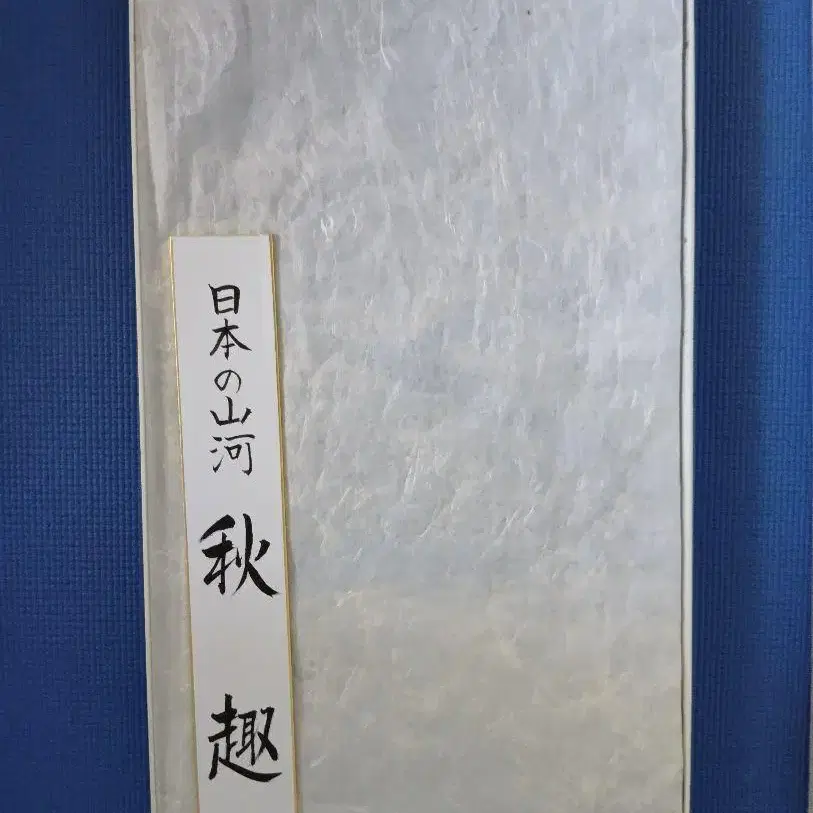 日本の山河 秋趣